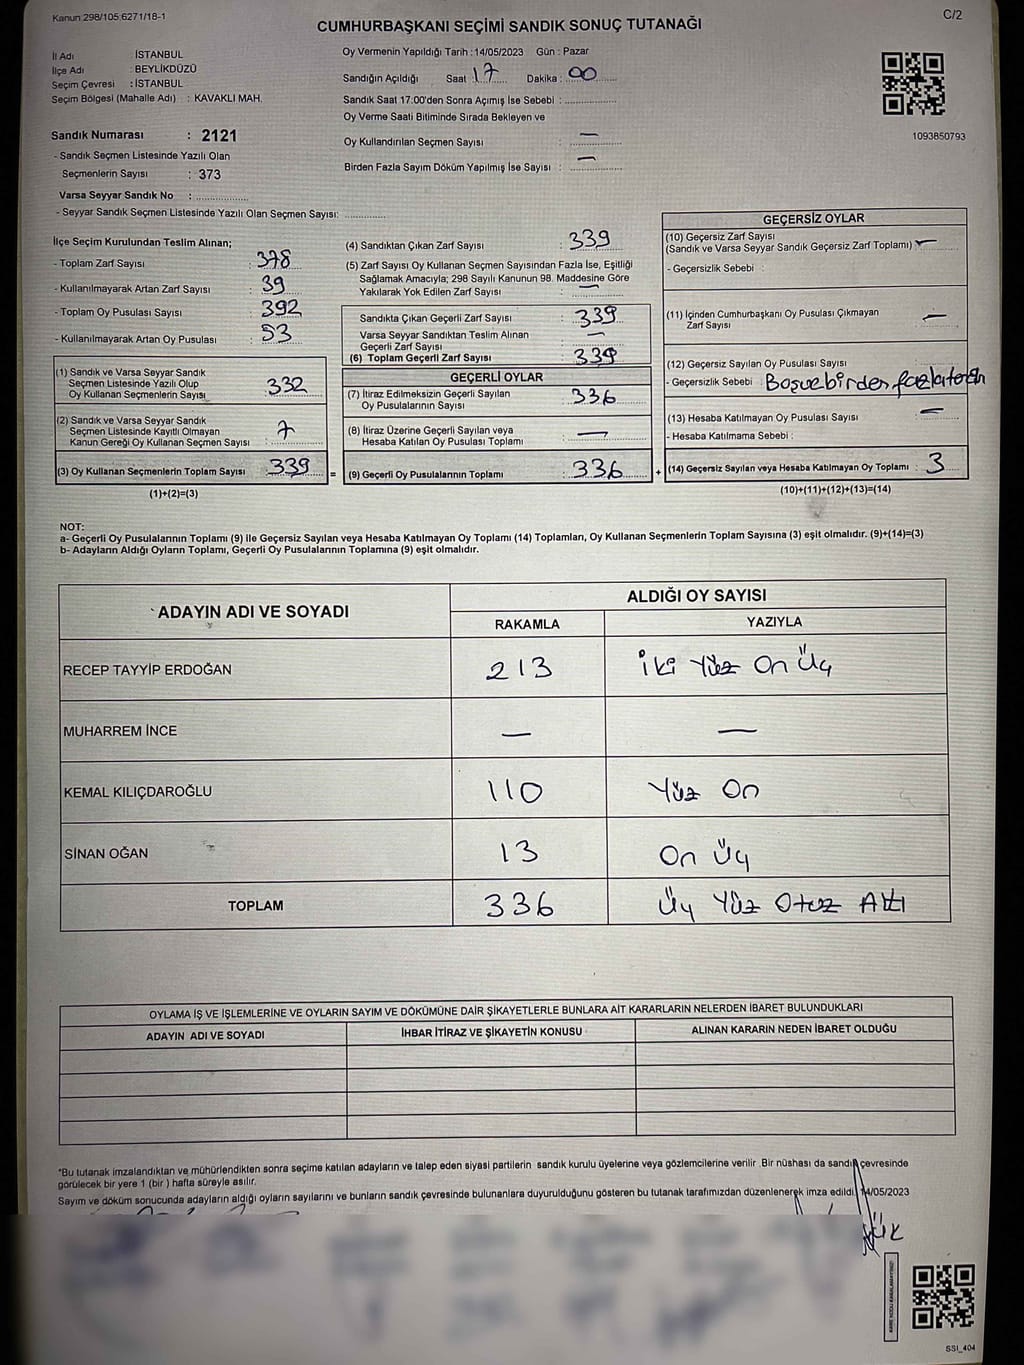 Kanun 298/105,6271/18-1
C/2
CUMHURBAŞKANI SEÇİMİ SANDIK SONUÇ TUTANAĞI
İl Adı : İSTANBUL
İlçe Adı : BEYLİKDÜZÜ
Seçim Çevresi : İSTANBUL
Seçim Bölgesi (Mahalle Adı) : KAVAKLI MAH.
Oy Vermenin Yapıldığı Tarih : 14/05/2023 Gün : Pazar
Sandığın Açıldığı Saat : 17 Dakika : 00
Sandık Saat 17:00'den Sonra Açımış İse Sebebi :
Oy Verme Saati Bitiminde Sırada Bekleyen ve
Oy Kullandırılan Seçmen Sayısı : —
Birden Fazla Sayım Döküm Yapılmış İse Sayısı : —
1093850793
Sandık Numarası : 2121
- Sandık Seçmen Listesinde Yazılı Olan
Seçmenlerin Sayısı : 373
Varsa Seyyar Sandık No :
- Seyyar Sandık Seçmen Listesinde Yazılı Olan Seçmen Sayısı:
İlçe Seçim Kurulundan Teslim Alınan;
- Toplam Zarf Sayısı : 378
- Kullanılmayarak Artan Zarf Sayısı : 39
- Toplam Oy Pusulası Sayısı : 392
- Kullanılmayarak Artan Oy Pusulası : 53
(1) Sandık ve Varsa Seyyar Sandık
Seçmen Listesinde Yazılı Olup
Oy Kullanan Seçmenlerin Sayısı : 332
(2) Sandık ve Varsa Seyyar Sandık
Seçmen Listesinde Kayıtlı Olmayan
Kanun Gereği Oy Kullanan Seçmen Sayısı : 7
(3) Oy Kullanan Seçmenlerin Toplam Sayısı : 339
(1)+(2)=(3)
(4) Sandıktan Çıkan Zarf Sayısı : 339
(5) Zarf Sayısı Oy Kullanan Seçmen Sayısından Fazla İse, Eşitliği
Sağlamak Amacıyla; 298 Sayılı Kanunun 98. Maddesine Göre
Yakılarak Yok Edilen Zarf Sayısı : —
Sandıkta Çıkan Geçerli Zarf Sayısı : 339
Varsa Seyyar Sandıktan Teslim Alınan
Geçerli Zarf Sayısı : —
(6) Toplam Geçerli Zarf Sayısı : 339
GEÇERLİ OYLAR
(7) İtiraz Edilmeksizin Geçerli Sayılan
Oy Pusulalarının Sayısı : 336
(8) İtiraz Üzerine Geçerli Sayılan veya
Hesaba Katılan Oy Pusulası Toplamı : —
= (9) Geçerli Oy Pusulalarının Toplamı : 336 +
GEÇERSİZ OYLAR
(10) Geçersiz Zarf Sayısı
(Sandık ve Varsa Seyyar Sandık Geçersiz Zarf Toplamı) : —
- Geçersizlik Sebebi :
(11) İçinden Cumhurbaşkanı Oy Pusulası Çıkmayan
Zarf Sayısı : —
(12) Geçersiz Sayılan Oy Pusulası Sayısı :
- Geçersizlik Sebebi : Boş ve birden fazla
(13) Hesaba Katılmayan Oy Pusulası Sayısı : —
- Hesaba Katılmama Sebebi :
(14) Geçersiz Sayılan veya Hesaba Katılmayan Oy Toplamı : 3
(10)+(11)+(12)+(13)=(14)
NOT:
a- Geçerli Oy Pusulalarının Toplamı (9) ile Geçersiz Sayılan veya Hesaba Katılmayan Oy Toplamı (14) Toplamları, Oy Kullanan Seçmenlerin Toplam Sayısına (3) eşit olmalıdır. (9)+(14)=(3)
b- Adayların Aldığı Oyların Toplamı, Geçerli Oy Pusulalarının Toplamına (9) eşit olmalıdır.
ADAYIN ADI VE SOYADI
ALDIĞI OY SAYISI
RAKAMLA YAZIYLA
RECEP TAYYİP ERDOĞAN 213 İki Yüz On Üç
MUHARREM İNCE — —
KEMAL KILIÇDAROĞLU 110 Yüz On
SİNAN OĞAN 13 On Üç
TOPLAM 336 Üç Yüz Otuz Altı
OYLAMA İŞ VE İŞLEMLERİNE VE OYLARIN SAYIM VE DÖKÜMÜNE DAİR ŞİKAYETLERLE BUNLARA AİT KARARLARIN NELERDEN İBARET BULUNDUKLARI
ADAYIN ADI VE SOYADI İHBAR İTİRAZ VE ŞİKAYETİN KONUSU ALINAN KARARIN NEDEN İBARET OLDUĞU
*Bu tutanak imzalandıktan ve mühürlendikten sonra seçime katılan adayların ve talep eden siyasi partilerin sandık kurulu üyelerine veya gözlemcilerine verilir .Bir nüshası da sandık çevresinde
görülecek bir yere 1 (bir ) hafta süreyle asılır.
Sayım ve döküm sonucunda adayların aldığı oyların sayılarını ve bunların sandık çevresinde bulunanlara duyurulduğunu gösteren bu tutanak tarafımızdan düzenlenerek imza edildi. 14/05/2023
SSI_404